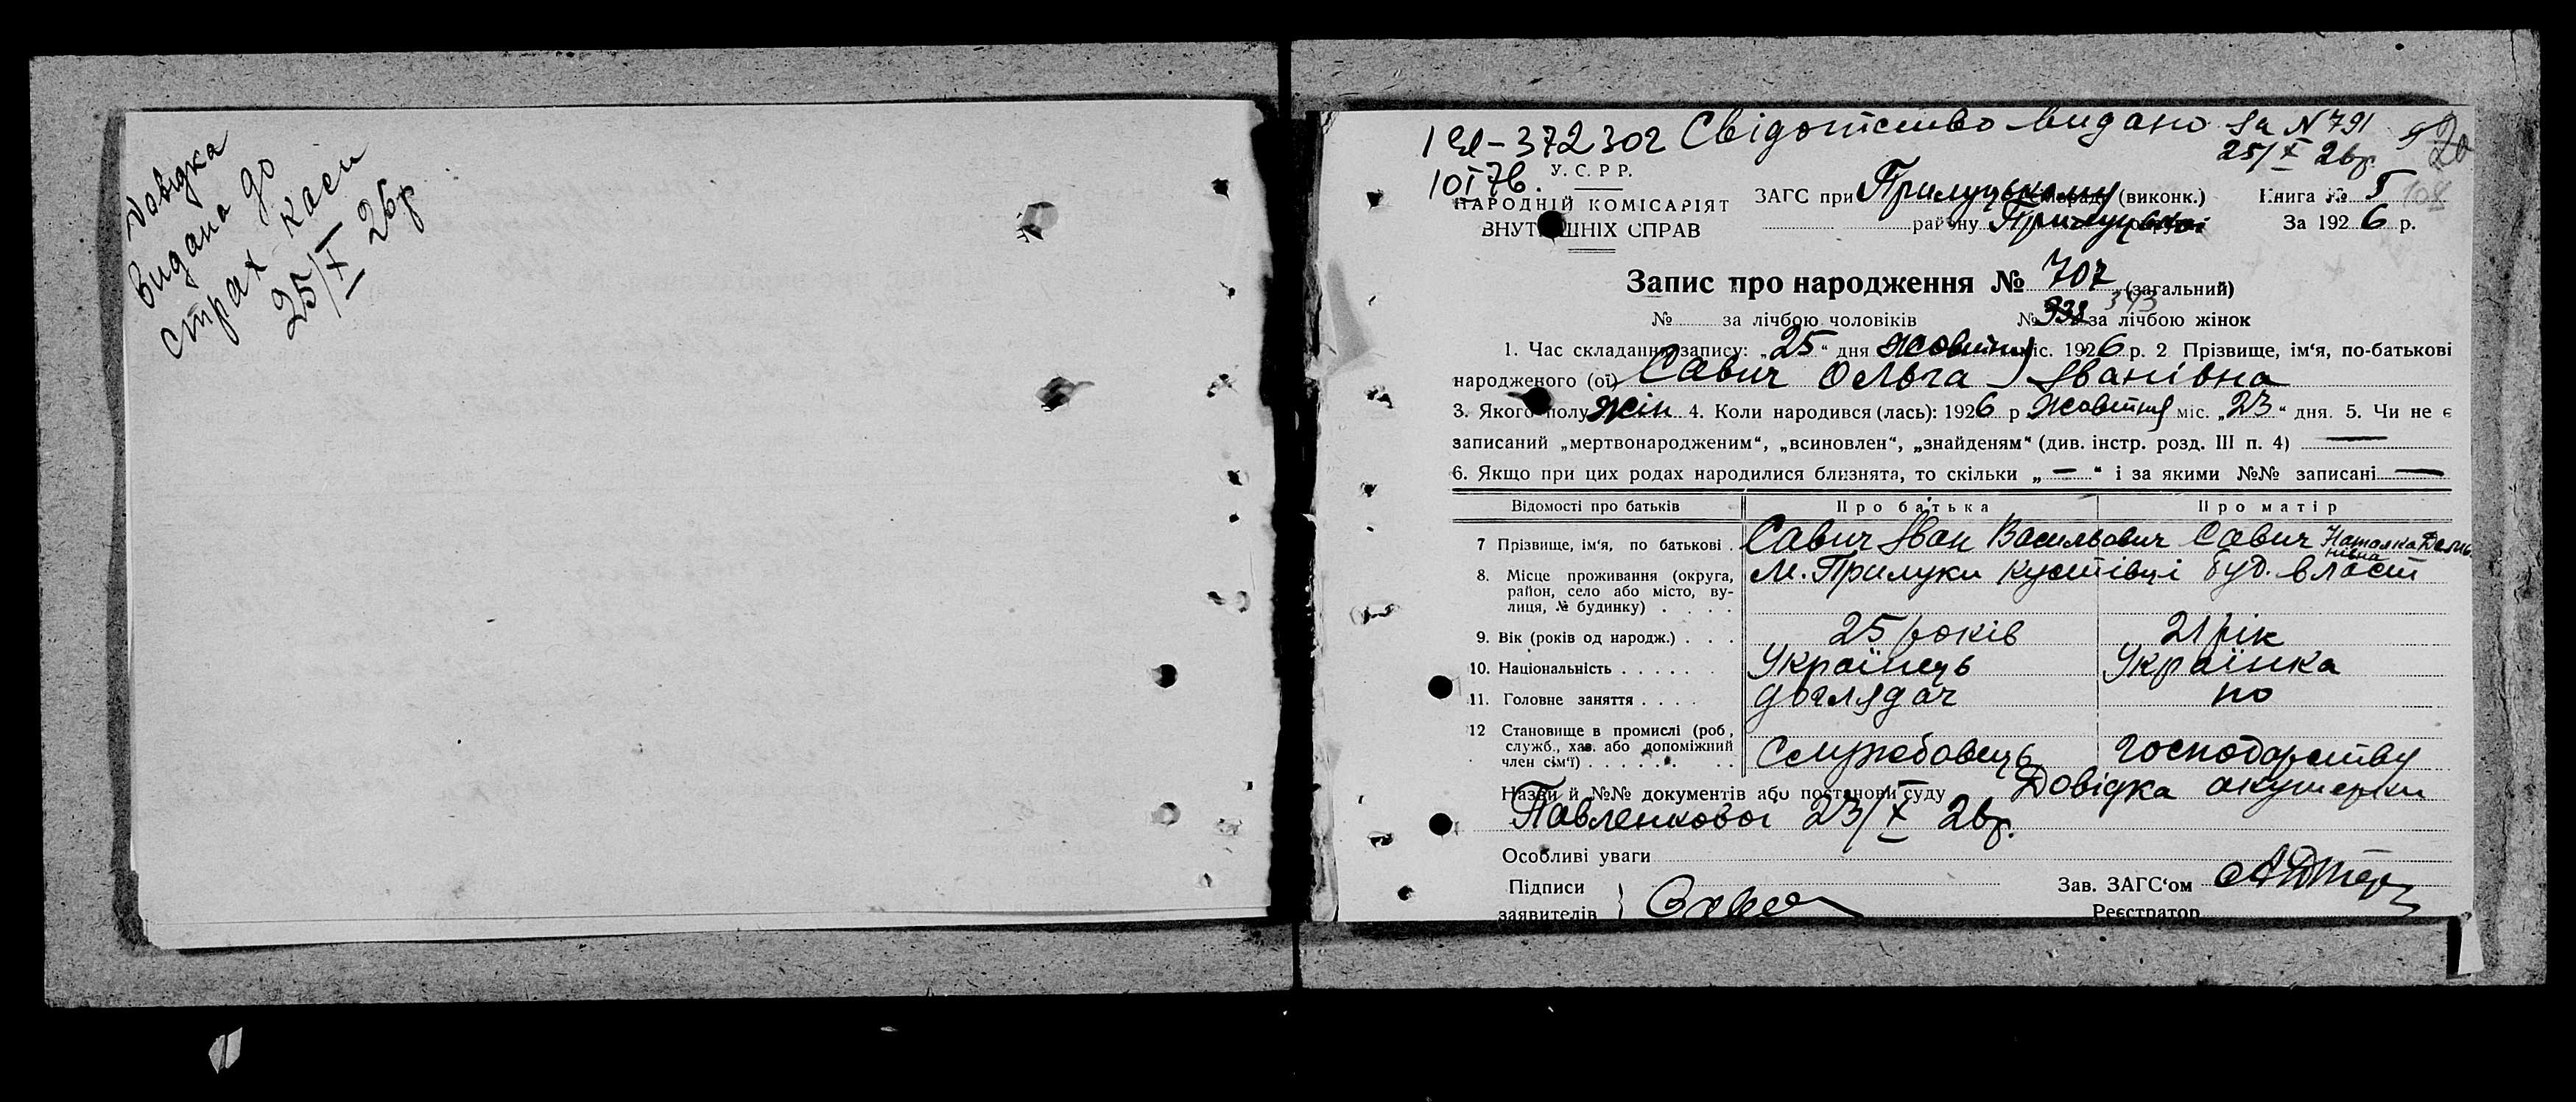 Довідка
видана до
страх каси
25/X 26р
1 ЕЛ-372302 Свідотство видано за N 791
25/X 26р.
10 I 76.
У. С. Р Р.
НАРОДНІЙ КОМІСАРІЯТ
ВНУТРІШНІХ СПРАВ
ЗАГС при Прилуцькому (виконк.)
району Прилуцької
Книга № 5
108
За 1926 р.
Запис про народження № 707 (загальний)
№ за лічбою чоловіків № 338 343 за лічбою жінок
1. Час складання запису: „25“ дня жовтня міс. 1926 р. 2 Прізвище, ім‘я, по-батькові
народженого (ої) Савич Ольга Іванівна
3. Якого полу жін 4. Коли народився (лась): 1926 р жовтня міс. „23“ дня. 5. Чи не є
записаний „мертвонародженим“, „всиновлен“, „знайденям“ (див. інстр. розд. III п. 4) —
6. Якщо при цих родах народилися близнята, то скільки „—“ і за якими №№ записані —
Відомості про батьків Про батька Про матір
7 Прізвище, ім‘я, по батькові . Савич Іван Васильович Савич Наталка
8. Місце проживання (округа, район, село або місто, вулиця, № будинку) . . . . м. Прилуки Кустівці буд. власт
9. Вік (років од народж.) . . . 25 років 21 рік
10. Національність . . . . . . Українець Українка
11. Головне заняття . . . . доглядач по
12 Становище в промислі (роб, служб., хаз. або допоміжний член сім‘ї) . . . . . . . . Службовець господарству
Назви й №№ документів або постанови суду Довідка акушерки
Павленкової 23/X 26р.
Особливі уваги
Підписи
заявителів
Зав. ЗАГС‘ом
Реєстратор